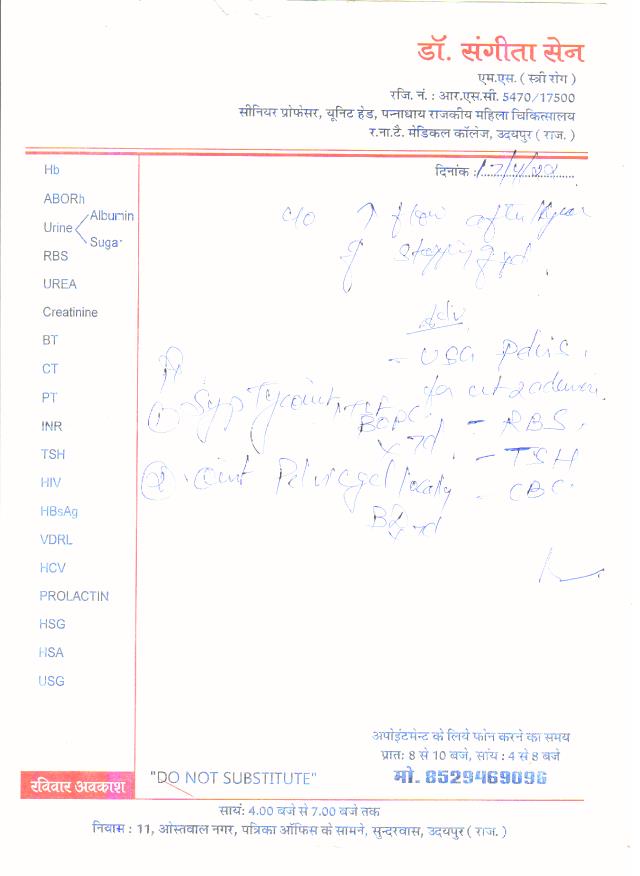 डॉ. संगीता सेन
एम.एस. ( स्त्री रोग )
रजि. नं. : आर.एस.सी. 5470/17500
सीनियर प्रोफेसर, यूनिट हेड, पन्नाधाय राजकीय महिला चिकित्सालय
र.ना.टै. मेडिकल कॉलेज, उदयपुर ( राज. )
दिनांक :
Hb
ABORh
Urine Albumin
Sugar
RBS
UREA
Creatinine
BT
CT
PT
INR
TSH
HIV
HBsAg
VDRL
HCV
PROLACTIN
HSG
HSA
USG
c/o ↑
of
adv
- USG Pelvis.
for
① Syp
- RBS.
- TSH
② locally - CBC.
अपोइंटमेन्ट के लिये फोन करने का समय
प्रात: 8 से 10 बजे, सांय : 4 से 8 बजे
मो. 8529469096
रविवार अवकाश
"DO NOT SUBSTITUTE"
सायं: 4.00 बजे से 7.00 बजे तक
निवास : 11, ओस्तवाल नगर, पत्रिका ऑफिस के सामने, सुन्दरवास, उदयपुर ( राज. )